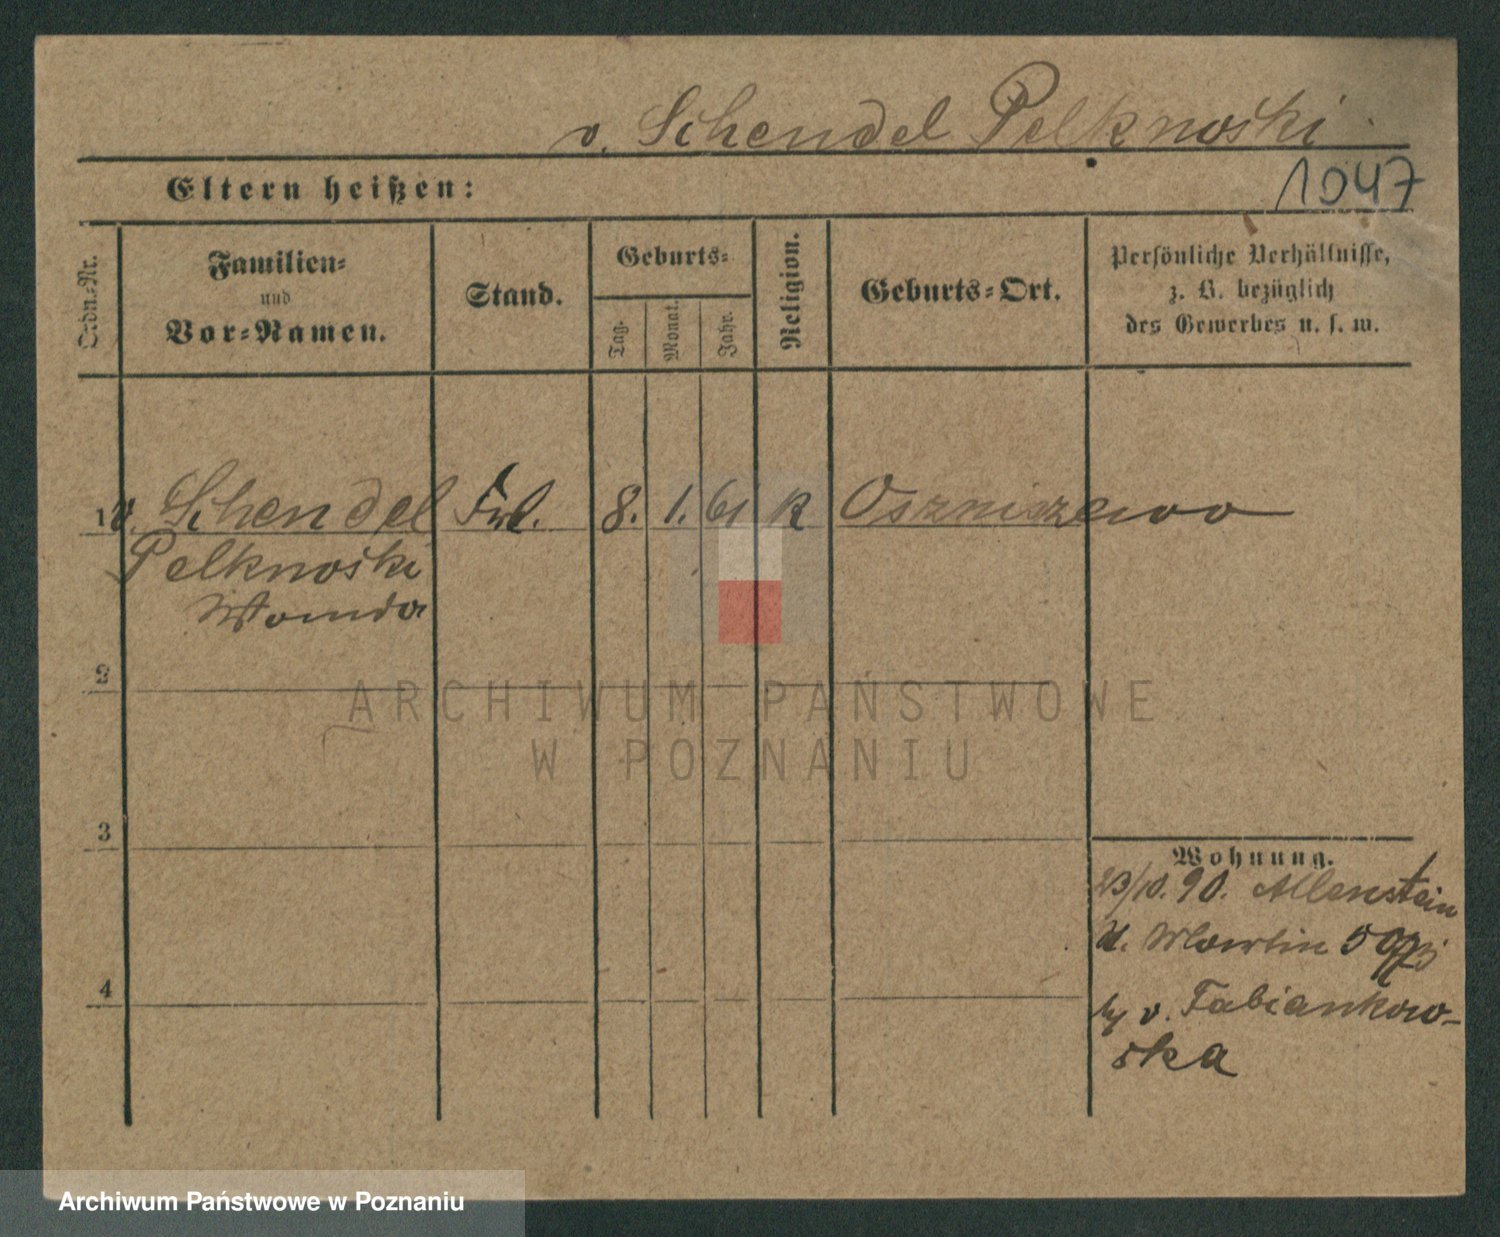 v. Schendel Pelknoski
Eltern heißen:
1047
Ordn.-Nr.
Familien-
und
Vor-Namen.
Stand.
Geburts-
Tag.
Monat.
Jahr.
Religion.
Geburts-Ort.
Persönliche Verhältnisse,
z. B. bezüglich
des Gewerbes u. s. w.
1 v. Schendel Frl. 8. 1. 61 K Oszniszewo
Pelknoski
Wanda
2
ARCHIWUM PAŃSTWOWE
W POZNANIU
3
Wohnung.
23/10. 90. Allenstein
St. Martin 59/3
by v. Fabiankow-
ska
4
Archiwum Państwowe w Poznaniu